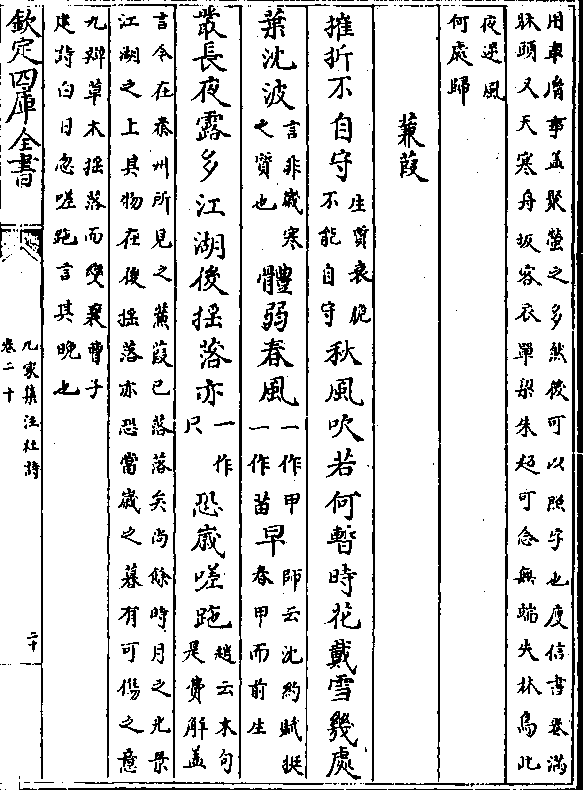 用車胤事蓋聚螢之多然後可以照字也庾信書卷滿
牀頭又天寒舟坂客衣單梁朱超可念無端失林鳥此
夜逆風
何處歸
蒹葭
摧折不自守生質衰脆不能自守秋風吹若何暫時花戴雪幾處
葉沈波言非歲寒之質也體弱春風一作甲一作苗早師云沈約賦挺春甲而前生
叢長夜露多江湖後摇落亦一作只恐歲嗟跎趙云末句是費解蓋
言今在秦州所見之蒹葭已落落矣尚餘時月之光景
江湖之上其物在後摇落亦恐當歲之暮有可傷之意
九辯草木摇落而變衰曹子
建詩白日忽嗟跎言其晚也
欽定四庫全書
九家集注杜詩
卷二十
二十